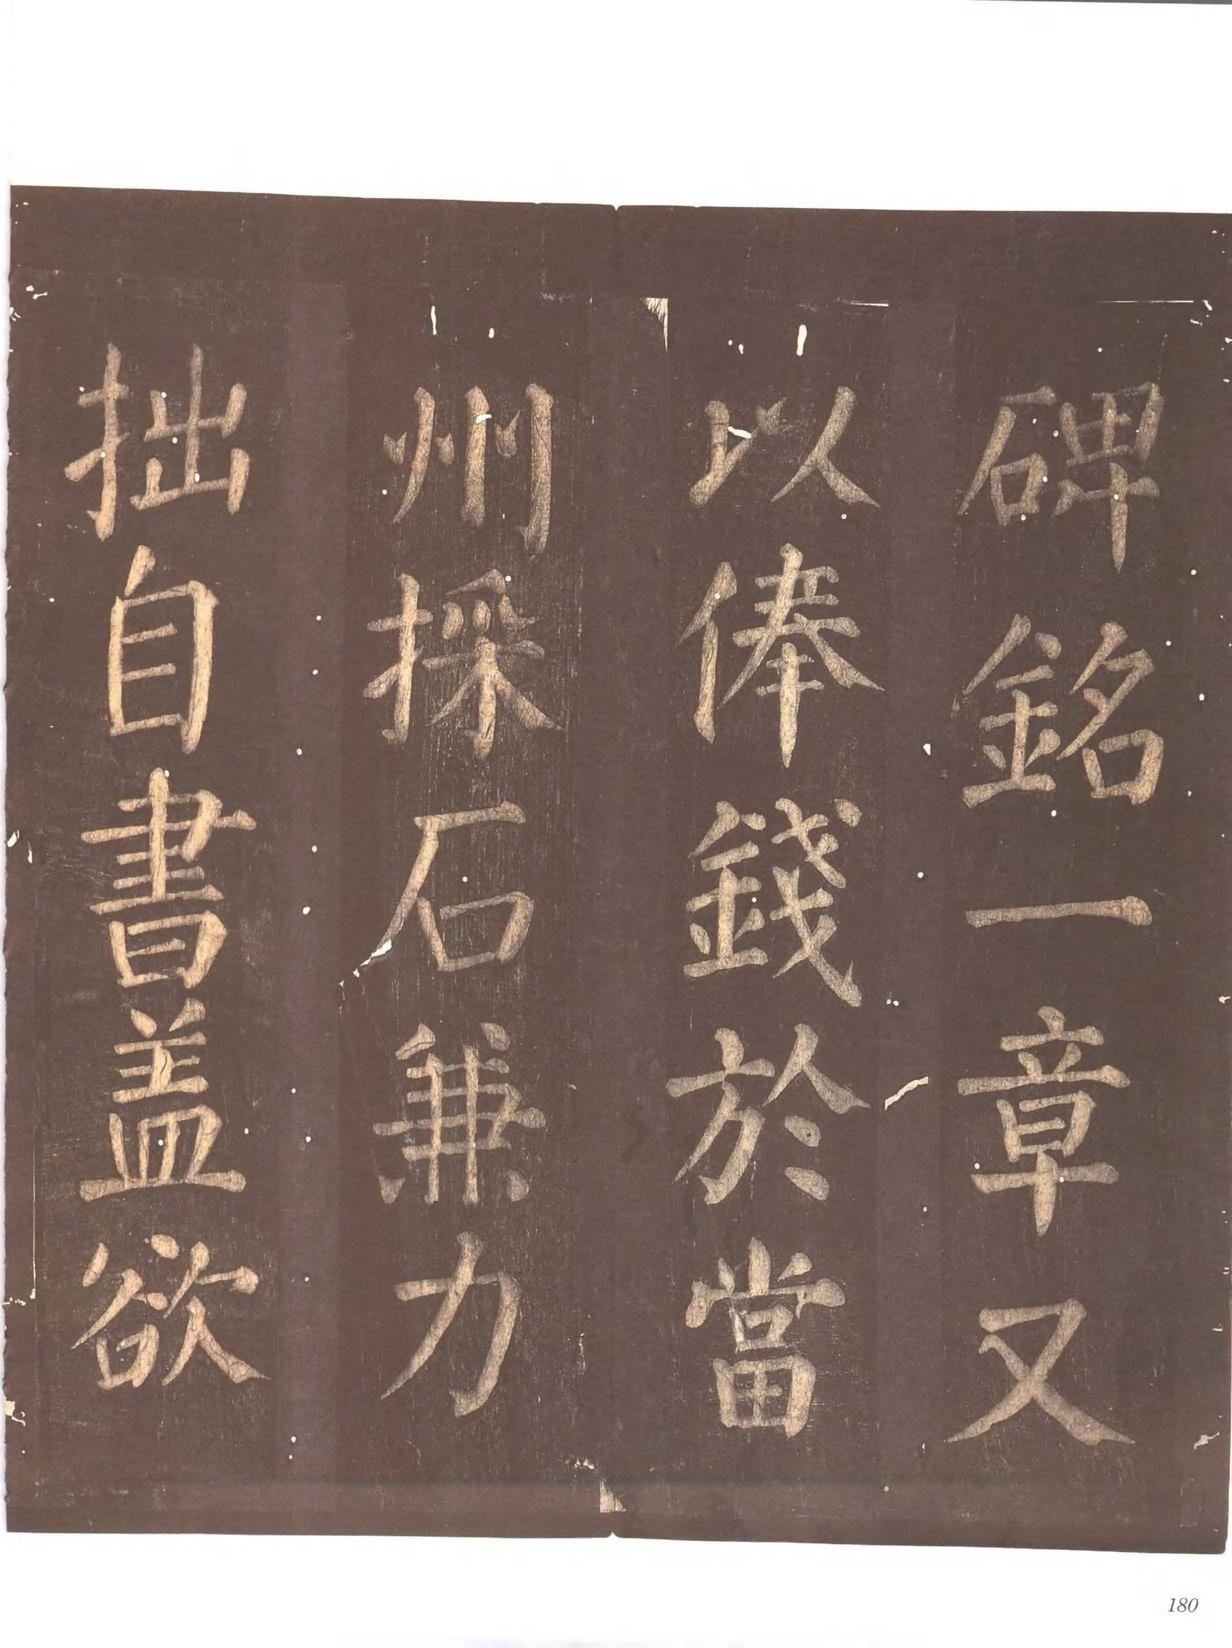 碑銘一章又
以俸錢於當
州採石兼力
拙自書蓋欲
180